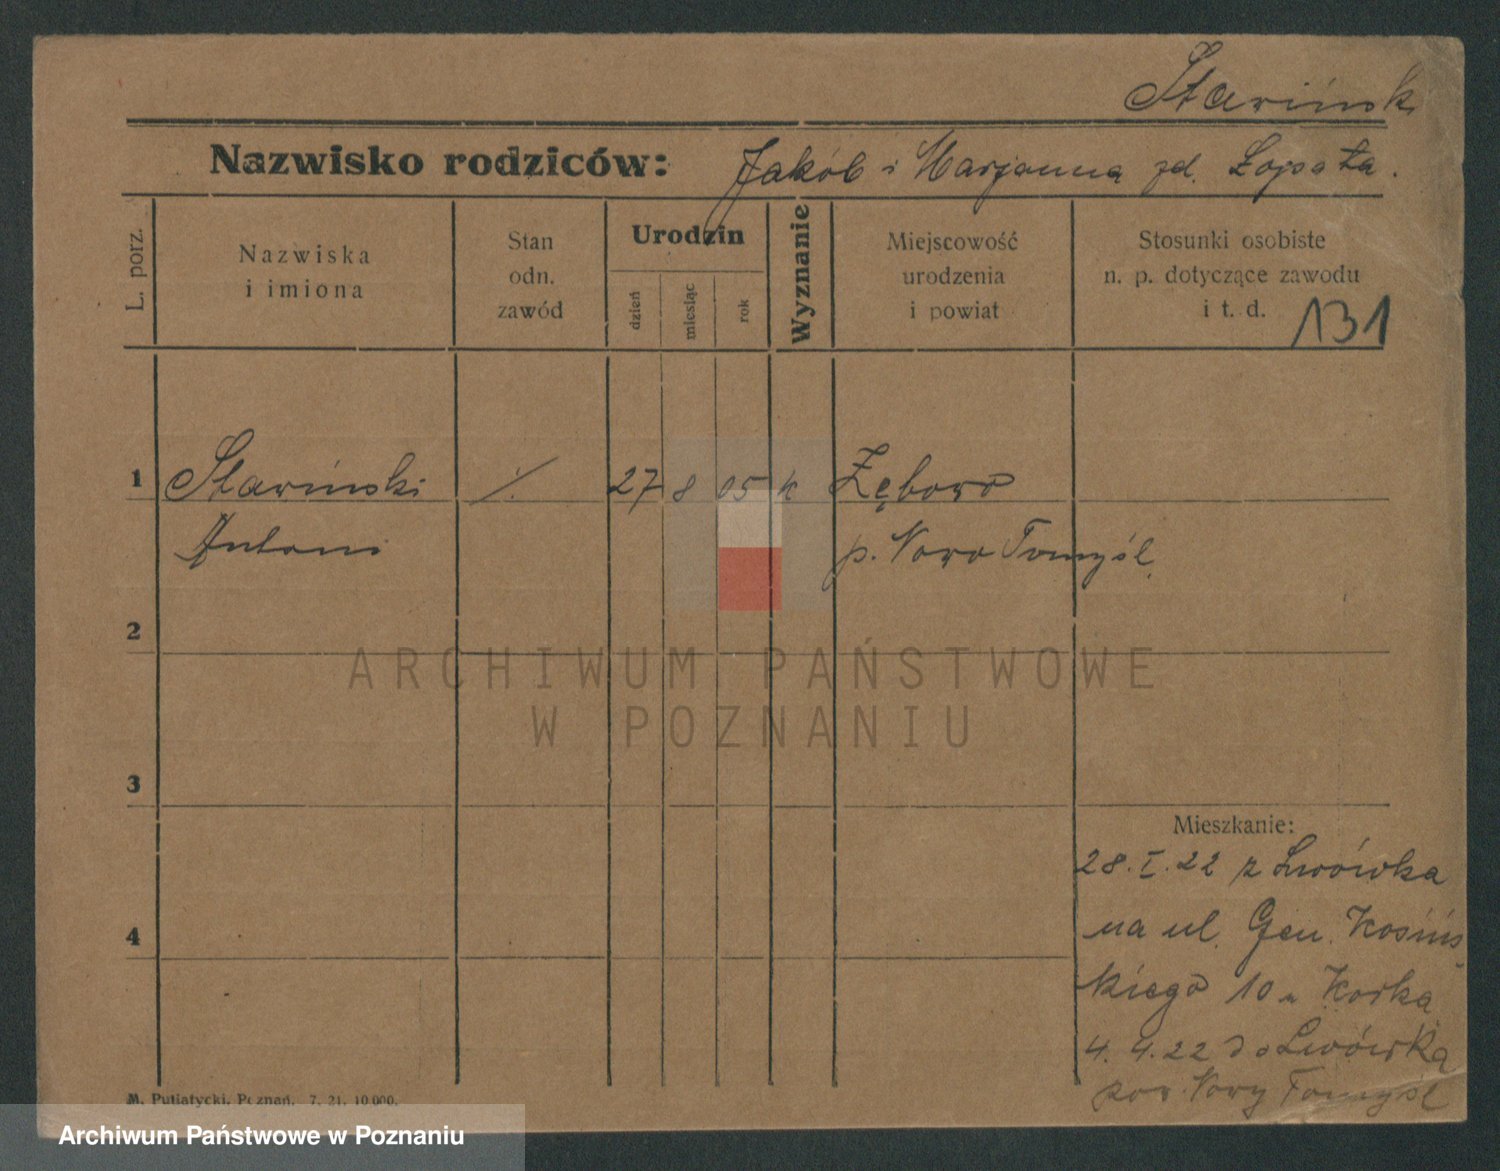 Stawińsk
Nazwisko rodziców: Jakób i Marjanna zd. Łopata.
L. porz.
Nazwiska
i imiona
Stan
odn.
zawód
Urodzin
dzień
miesiąc
rok
Wyznanie
Miejscowość
urodzenia
i powiat
Stosunki osobiste
n. p. dotyczące zawodu
i t. d.
131
1 Stawiński ./. 27 8 05 k Zębowo
Antoni p. Nowo Tomyśl.
2
ARCHIWUM PAŃSTWOWE
W POZNANIU
3
Mieszkanie:
28.I.22 z Lwówka
4 na ul. Gen. Kosińs
kiego 10 u
4. 4.22 do Lwówka
pow. Nowy Tomyśl
M. Putiatycki, Poznań. 7. 21. 10.000.
Archiwum Państwowe w Poznaniu